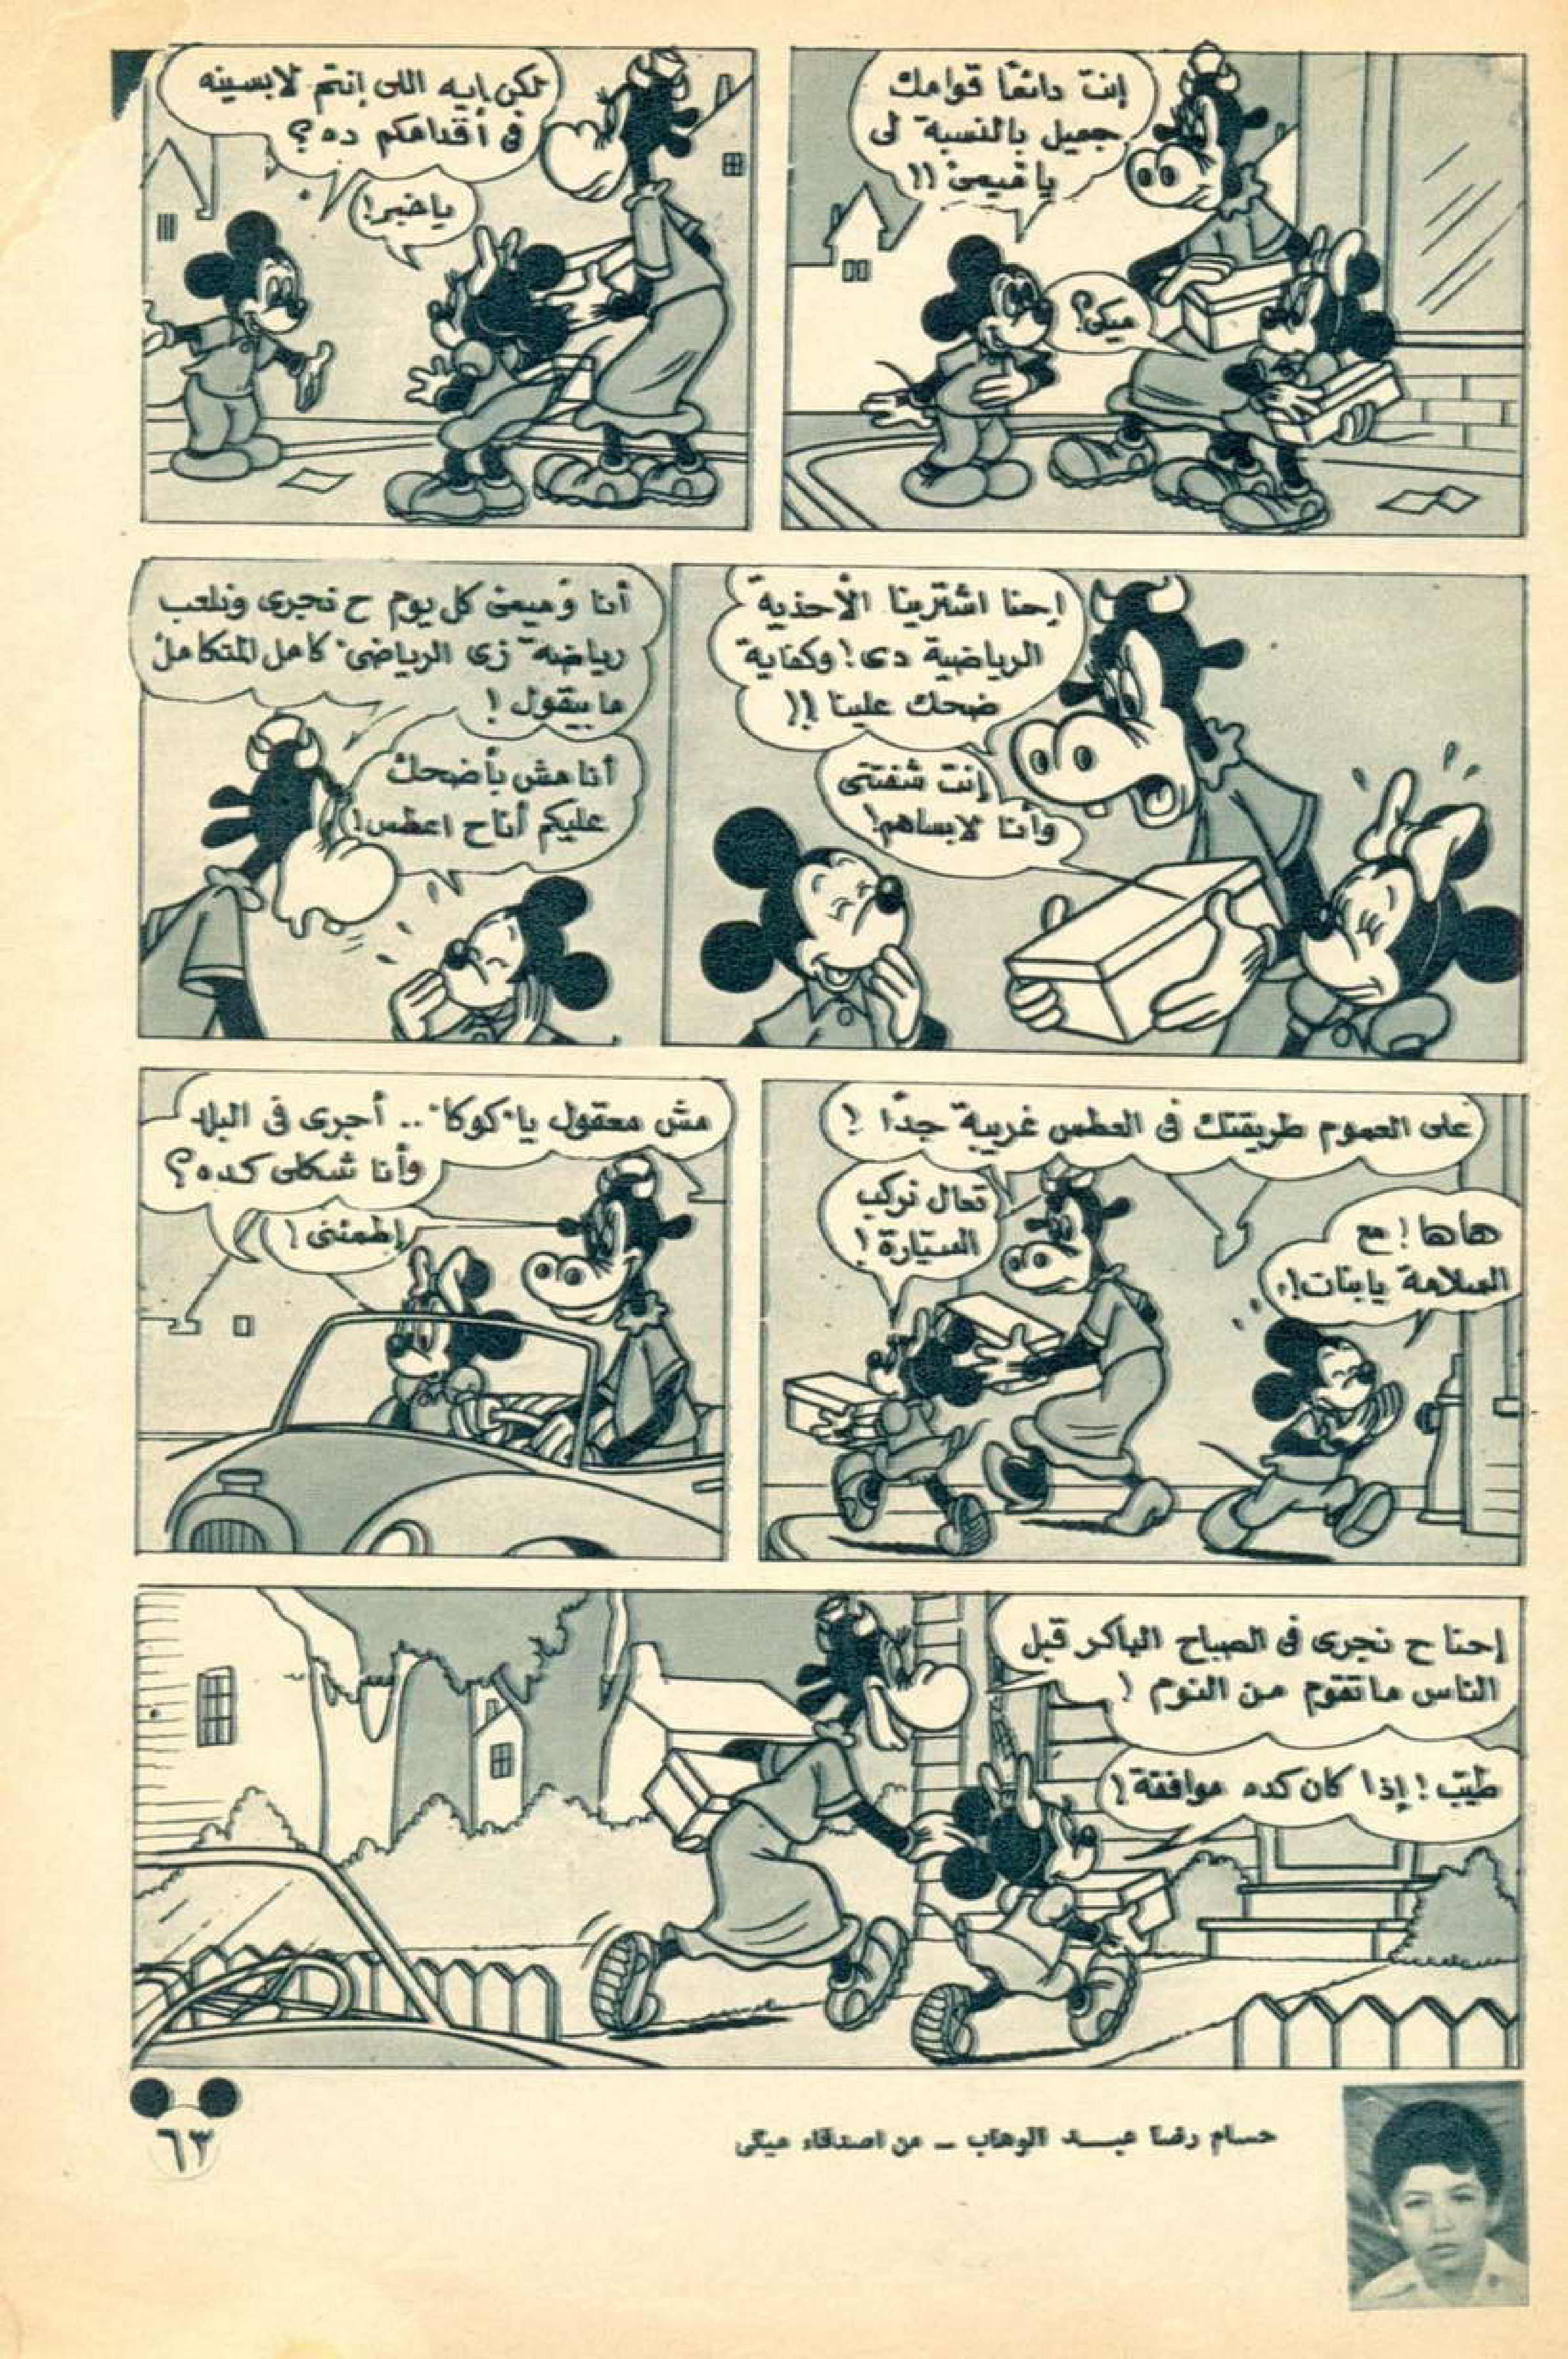 إنت دائمًا قوامك
جميل بالنسبة لى
يا ميمى !!
ميكى؟
لكن إيه اللى إنتم لابسينه
فى أقدامكم ده ؟
ياخبر!
إحنا اشترينا الأحذية
الرياضية دى! وكفاية
ضحك علينا !!
إنت شفتنى
وأنا لابساهم!
أنا وميمى كل يوم ح نجرى ونلعب
رياضة زى الرياضى كامل المتكامل
ما بيقول !
أنا مش بأضحك
عليكم أنا ح اعطس!
على العموم طريقتك فى العطس غريبة جدًا !
تعال نركب
السيارة !
هاها ! مع
السلامة يا بنات !
مش معقول يا "كوكا" .. أجرى فى البلد
وأنا شكلى كده ؟
إطمئنى !
إحنا ح نجرى فى الصباح الباكر قبل
الناس ماتقوم من النوم !
طيب ! إذا كان كده موافقة !
حسام رضا عبد الوهاب - من اصدقاء ميكى
٦٣